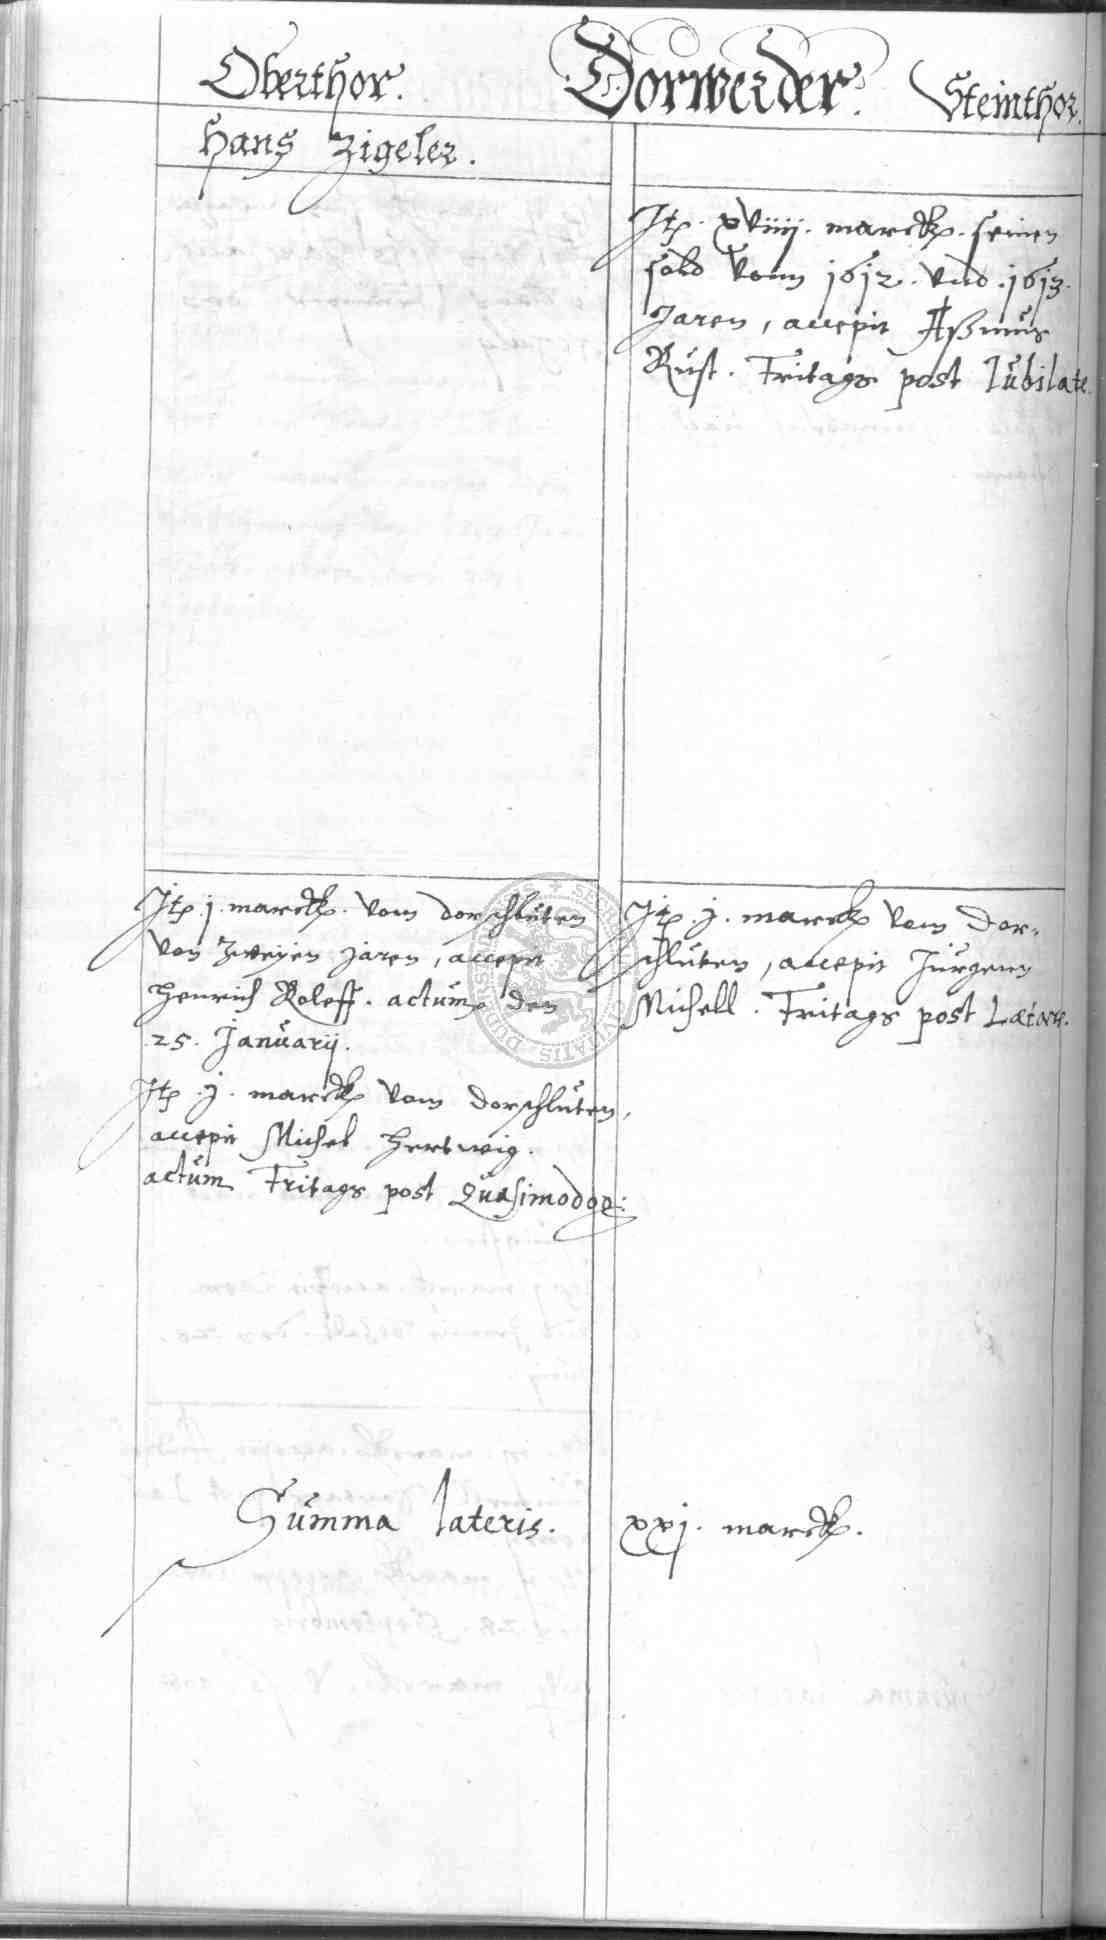 Oberthor. Dorweider. Steinthor.
Hans Zigeler.
Jtp. xviiij. marckp. seinen
sold vonn 1612. vnd .1613.
Jaren, accepit Aßmus
Rust. Fritags post Iubilate.
Jtp. j. marckp. vom dorschluten
von zweyen jaren, accepit
Henrich Roleff. actum den
25. Januarij.
Jtp .j. marckp vom dorschluten,
accepit Michel Hertwig.
actum Fritags post Quasimodog:
Jtp. j. marckp vom dor-
schluten, accepit Jürgenn
Michell. Fritags post Lætare.
Summa lateris. xxj. marckp.